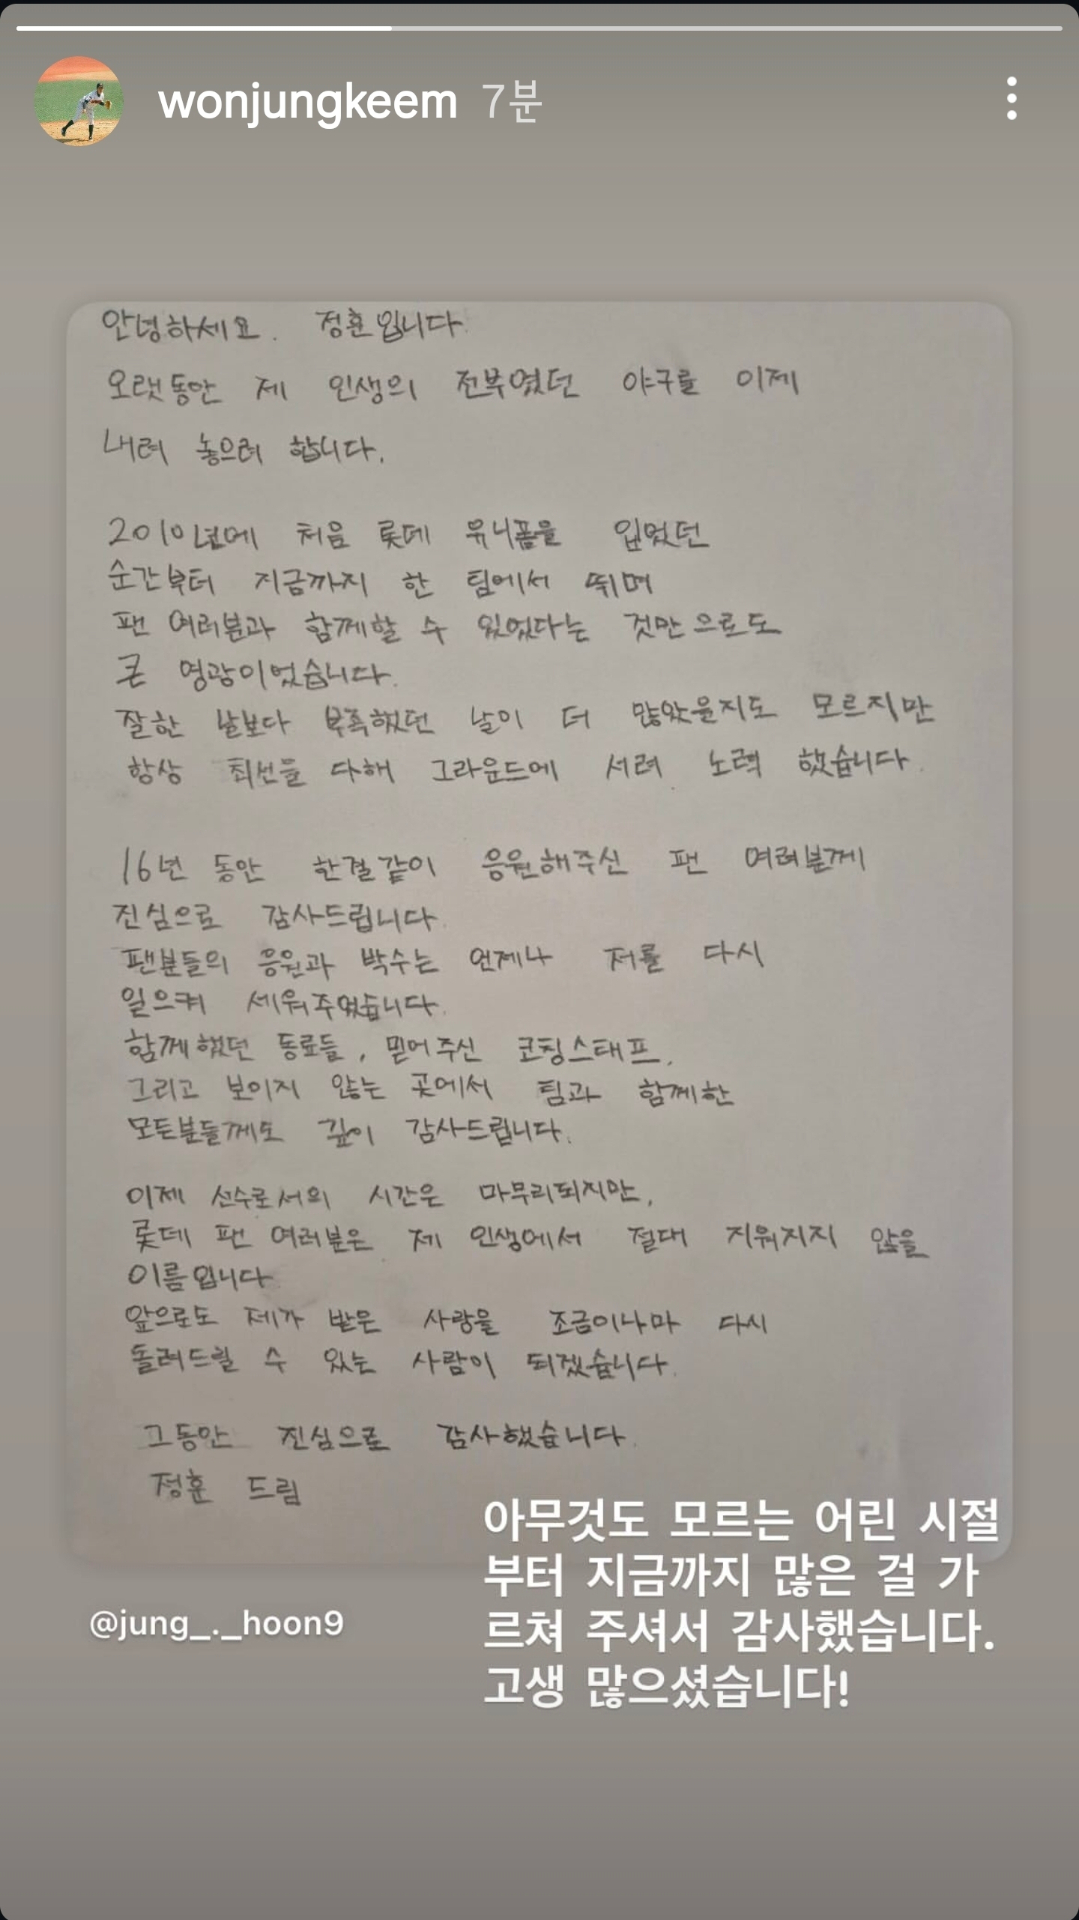 wonjungkeem 7분
안녕하세요. 정훈입니다.
오랫동안 제 인생의 전부였던 야구를 이제
내려 놓으려 합니다.
2010년에 처음 롯데 유니폼을 입었던
순간부터 지금까지 한 팀에서 뛰며
팬 여러분과 함께할 수 있었다는 것만으로도
큰 영광이었습니다.
잘한 날보다 부족했던 날이 더 많았을지도 모르지만
항상 최선을 다해 그라운드에 서려 노력 했습니다.
16년 동안 한결같이 응원해주신 팬 여러분께
진심으로 감사드립니다.
팬분들의 응원과 박수는 언제나 저를 다시
일으켜 세워주었습니다.
함께했던 동료들, 믿어주신 코칭스태프,
그리고 보이지 않는 곳에서 팀과 함께한
모든분들께도 깊이 감사드립니다.
이제 선수로서의 시간은 마무리되지만,
롯데 팬 여러분은 제 인생에서 절대 지워지지 않을
이름입니다
앞으로도 제가 받은 사랑을 조금이나마 다시
돌려드릴 수 있는 사람이 되겠습니다.
그동안 진심으로 감사했습니다.
정훈 드림
아무것도 모르는 어린 시절
부터 지금까지 많은 걸 가
르쳐 주셔서 감사했습니다.
고생 많으셨습니다!
@jung_._hoon9